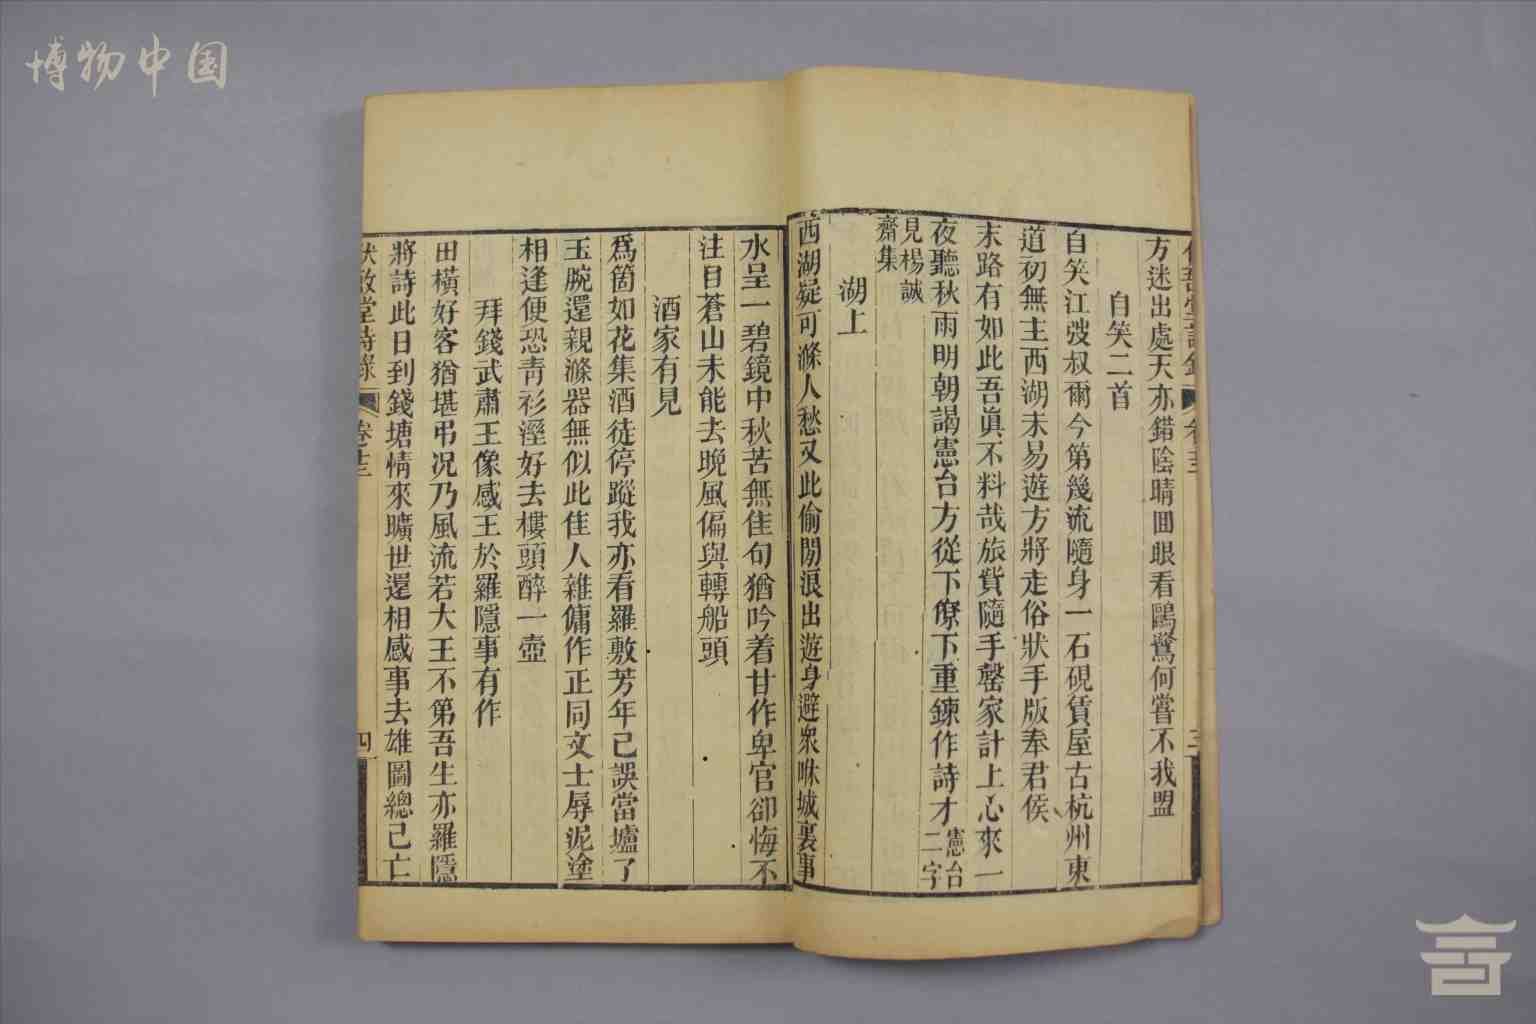 博物中国
方迷出處天亦錯陰晴囬眼看鷗鷺何嘗不我盟
自笑二首
自笑江弢叔爾今第幾流隨身一石硯賃屋古杭州東
道初無主西湖未易遊方將走俗狀手版奉君侯
末路有如此吾眞不料哉旅貲隨手罄家計上心來一
夜聽秋雨明朝謁憲台方從下僚下重鍊作詩才憲台二字
見楊誠齋集
湖上
西湖疑可滌人愁又此偷閒浪出遊身避衆咻城裏事
水呈一碧鏡中秋苦無佳句猶吟着甘作卑官卻悔不
注目蒼山未能去晚風偏與轉船頭
酒家有見
爲箇如花集酒徒停蹤我亦看羅敷芳年已誤當壚了
玉腕還親滌器無似此佳人雜傭作正同文士辱泥塗
相逢便恐靑衫溼好去樓頭醉一壺
拜錢武肅王像感王於羅隱事有作
田橫好客猶堪弔况乃風流若大王不第吾生亦羅隱
將詩此日到錢塘情來曠世還相感事去雄圖總已亡
伏敔堂詩錄
卷十三
四